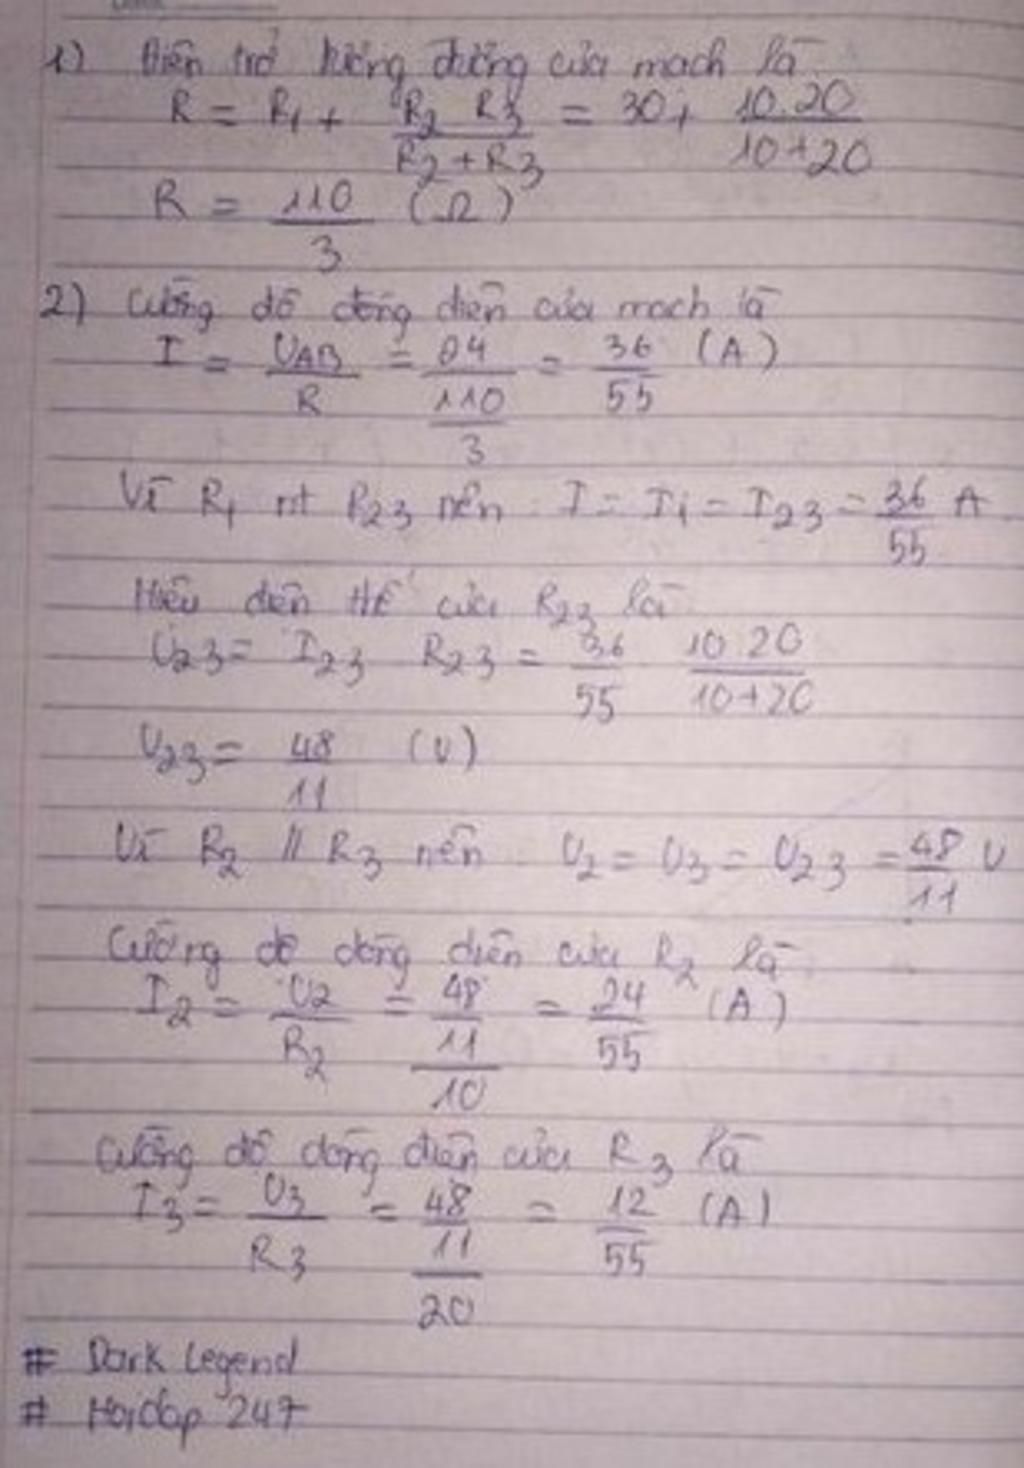 1) Điện trở tương đương của mạch là
R = R1 + R2 R3 / R2 + R3 = 30 + 10.20 / 10+20
R = 110/3 (Ω)
2) Cường độ dòng điện của mạch là
I = UAB / R = 24 / 110/3 = 36/55 (A)
Vì R1 nt R23 nên : I = I1 = I23 = 36/55 A
Hiệu điện thế của R23 là
U23 = I23 R23 = 36/55 10.20 / 10+20
U23 = 48/11 (V)
Vì R2 // R3 nên : U2 = U3 = U23 = 48/11 V
Cường độ dòng điện của R2 là :
I2 = U2 / R2 = 48/11 / 10 = 24/55 (A)
Cường độ dòng điện của R3 là
I3 = U3 / R3 = 48/11 / 20 = 12/55 (A)
# Dark Legend
# Hoidap 247